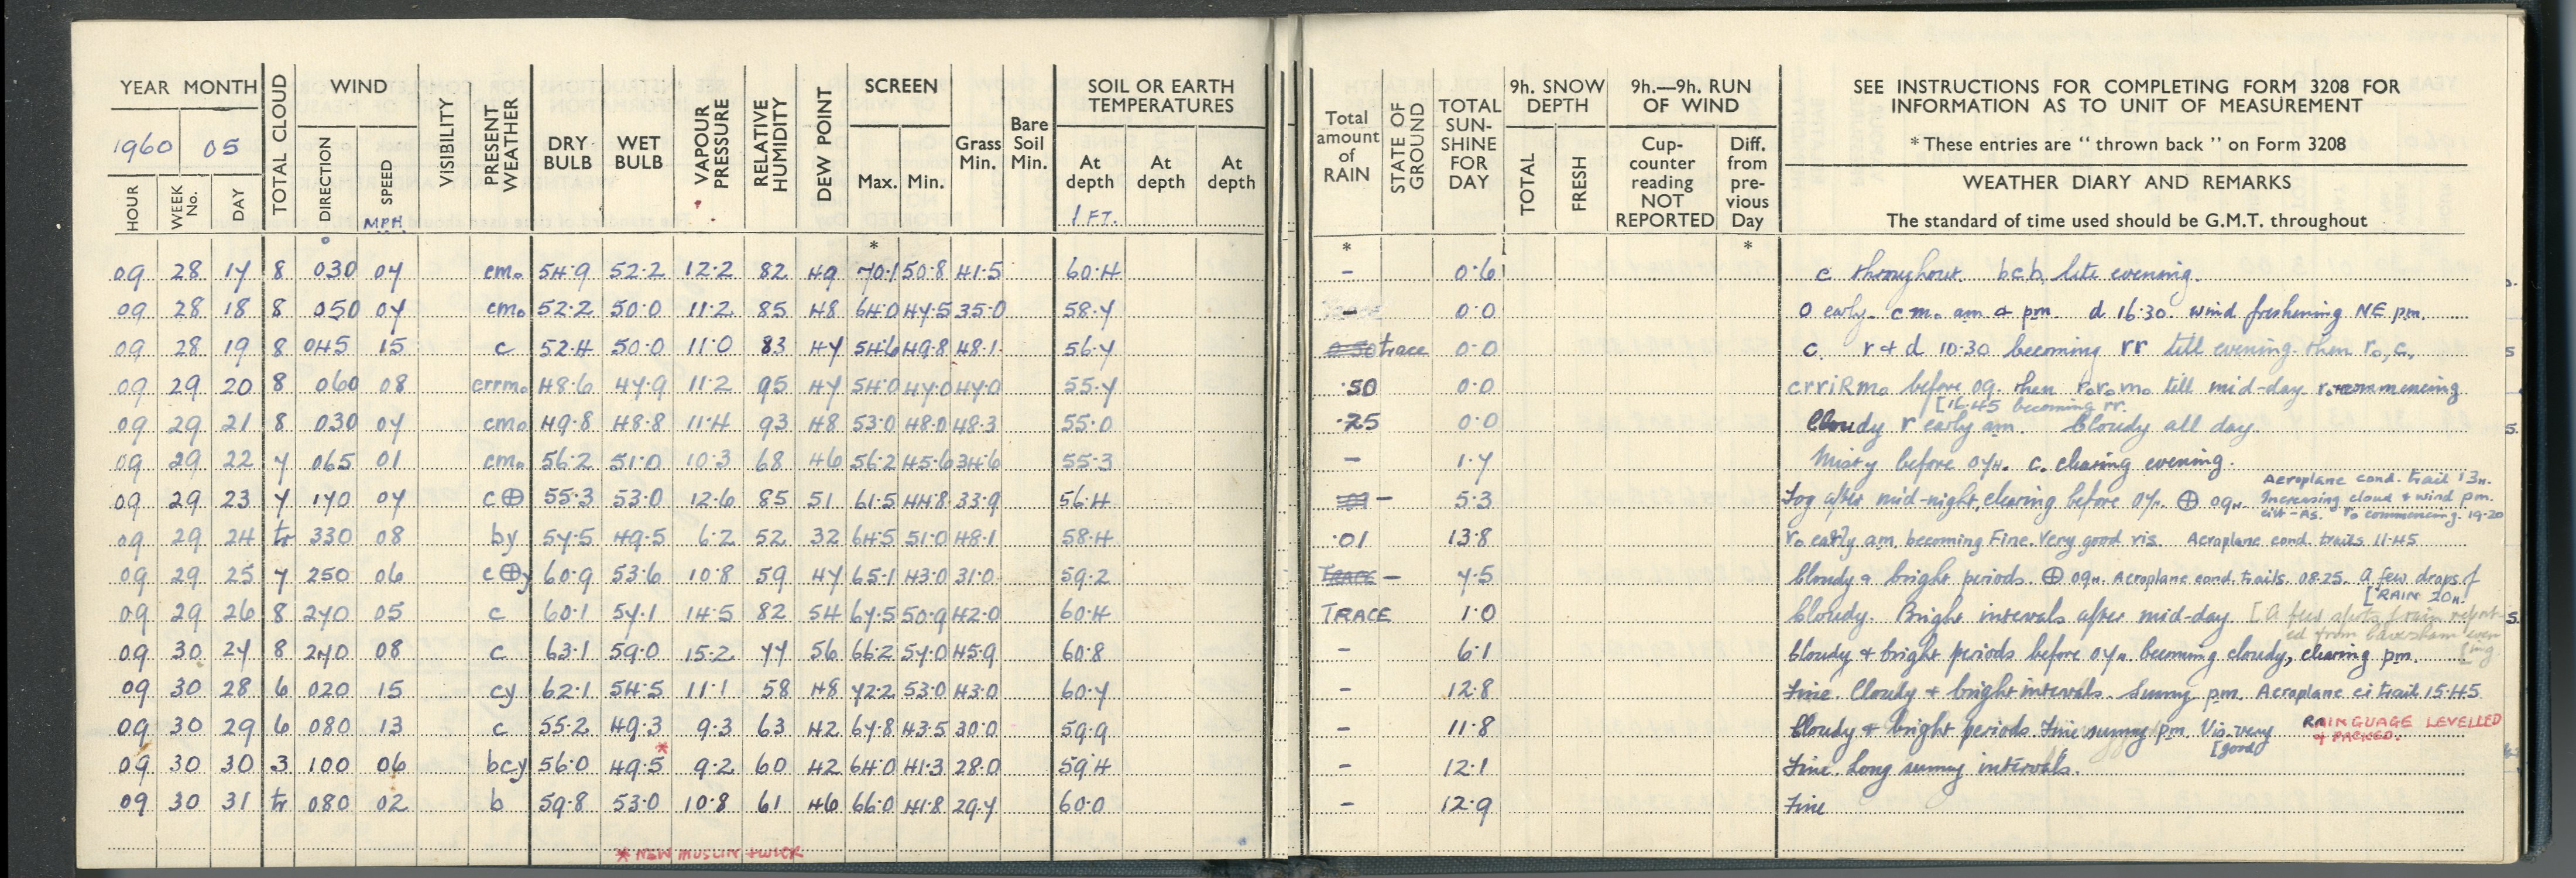 YEAR MONTH
1960 05
HOUR
WEEK No.
DAY
TOTAL CLOUD
WIND
DIRECTION
SPEED
MPH
VISIBILITY
PRESENT WEATHER
DRY BULB
WET BULB
VAPOUR PRESSURE
RELATIVE HUMIDITY
DEW POINT
SCREEN
Max. Min.
Grass Min.
Bare Soil Min.
SOIL OR EARTH
TEMPERATURES
At depth At depth At depth
1 FT.
Total amount of RAIN
STATE OF GROUND
TOTAL SUN-SHINE FOR DAY
9h. SNOW DEPTH
TOTAL
FRESH
9h.—9h. RUN OF WIND
Cup-counter reading NOT REPORTED
Diff. from pre-vious Day
SEE INSTRUCTIONS FOR COMPLETING FORM 3208 FOR
INFORMATION AS TO UNIT OF MEASUREMENT
* These entries are "thrown back" on Form 3208
WEATHER DIARY AND REMARKS
The standard of time used should be G.M.T. throughout
* * *
09 28 17 8 030 07 cm₀ 54.9 52.2 12.2 82 49 70.1 50.8 41.5 60.4 – 0.6 c throughout. bcb late evening.
09 28 18 8 050 07 cm₀ 52.2 50.0 11.2 85 48 64.0 47.5 35.0 58.7 – 0.0 O early. c m₀ am & pm. d 16.30. wind freshening NE pm.
09 28 19 8 045 15 c 52.4 50.0 11.0 83 47 54.6 49.8 48.1 56.7 0.50 trace 0.0 c. r & d 10.30 becoming rr till evening. then r₀, c.
09 29 20 8 060 08 crrm₀ 48.6 47.9 11.2 95 47 54.0 47.0 47.0 55.7 .50 0.0 crriRm₀ before 09. then r₀r₀m₀ till mid-day. r₀ recommencing
[16.45 becoming rr.
09 29 21 8 030 07 cm₀ 49.8 48.8 11.4 93 48 53.0 48.0 48.3 55.0 .25 0.0 Cloudy r early am. Cloudy all day.
09 29 22 7 065 01 cm₀ 56.2 51.0 10.3 68 46 56.2 45.6 34.6 55.3 – 1.7 Misty before 07H. c. clearing evening.
09 29 23 7 170 07 c⊕ 55.3 53.0 12.6 85 51 61.5 44.8 33.9 56.4 – 5.3 Fog after mid-night, clearing before 07H. ⊕ 09H. Aeroplane cond. trail 13H.
Increasing cloud & wind pm.
r₀ commencing 19.20
09 29 24 tr 330 08 by 57.5 49.5 6.2 52 32 64.5 51.0 48.1 58.4 .01 13.8 r₀ early am. becoming Fine. Very good vis. Aeroplane cond. trails 11.45
09 29 25 7 250 06 c⊕y 60.9 53.6 10.8 59 47 65.1 43.0 31.0 59.2 TRACE – 7.5 Cloudy & bright periods. ⊕ 09H. Aeroplane cond. trails. 08.25. A few drops of
[RAIN 20H.
09 29 26 8 270 05 c 60.1 57.1 14.5 82 54 67.5 50.9 42.0 60.4 TRACE 1.0 Cloudy. Bright intervals after mid-day [A few spots of rain report-
ed from Caversham even
[ing
09 30 27 8 270 08 c 63.1 59.0 15.2 77 56 66.2 57.0 45.9 60.8 – 6.1 Cloudy & bright periods before 07H becoming cloudy, clearing pm.
09 30 28 6 020 15 cy 62.1 54.5 11.1 58 48 72.2 53.0 43.0 60.7 – 12.8 Fine. Cloudy & bright intervals. Sunny pm. Aeroplane ci trail 15.45
09 30 29 6 080 13 c 55.2 49.3 9.3 63 42 67.8 43.5 30.0 59.9 – 11.8 Cloudy & bright periods. Fine sunny pm. Vis. very
[good
RAINGUAGE LEVELLED
& PACKED.
09 30 30 3 100 06 bcy 56.0 49.5* 9.2 60 42 64.0 41.3 28.0 59.4 – 12.1 Fine. Long sunny intervals.
09 30 31 tr 080 02 b 59.8 53.0 10.8 61 46 66.0 41.8 29.7 60.0 – 12.9 Fine
* NEW MUSLIN & WICK